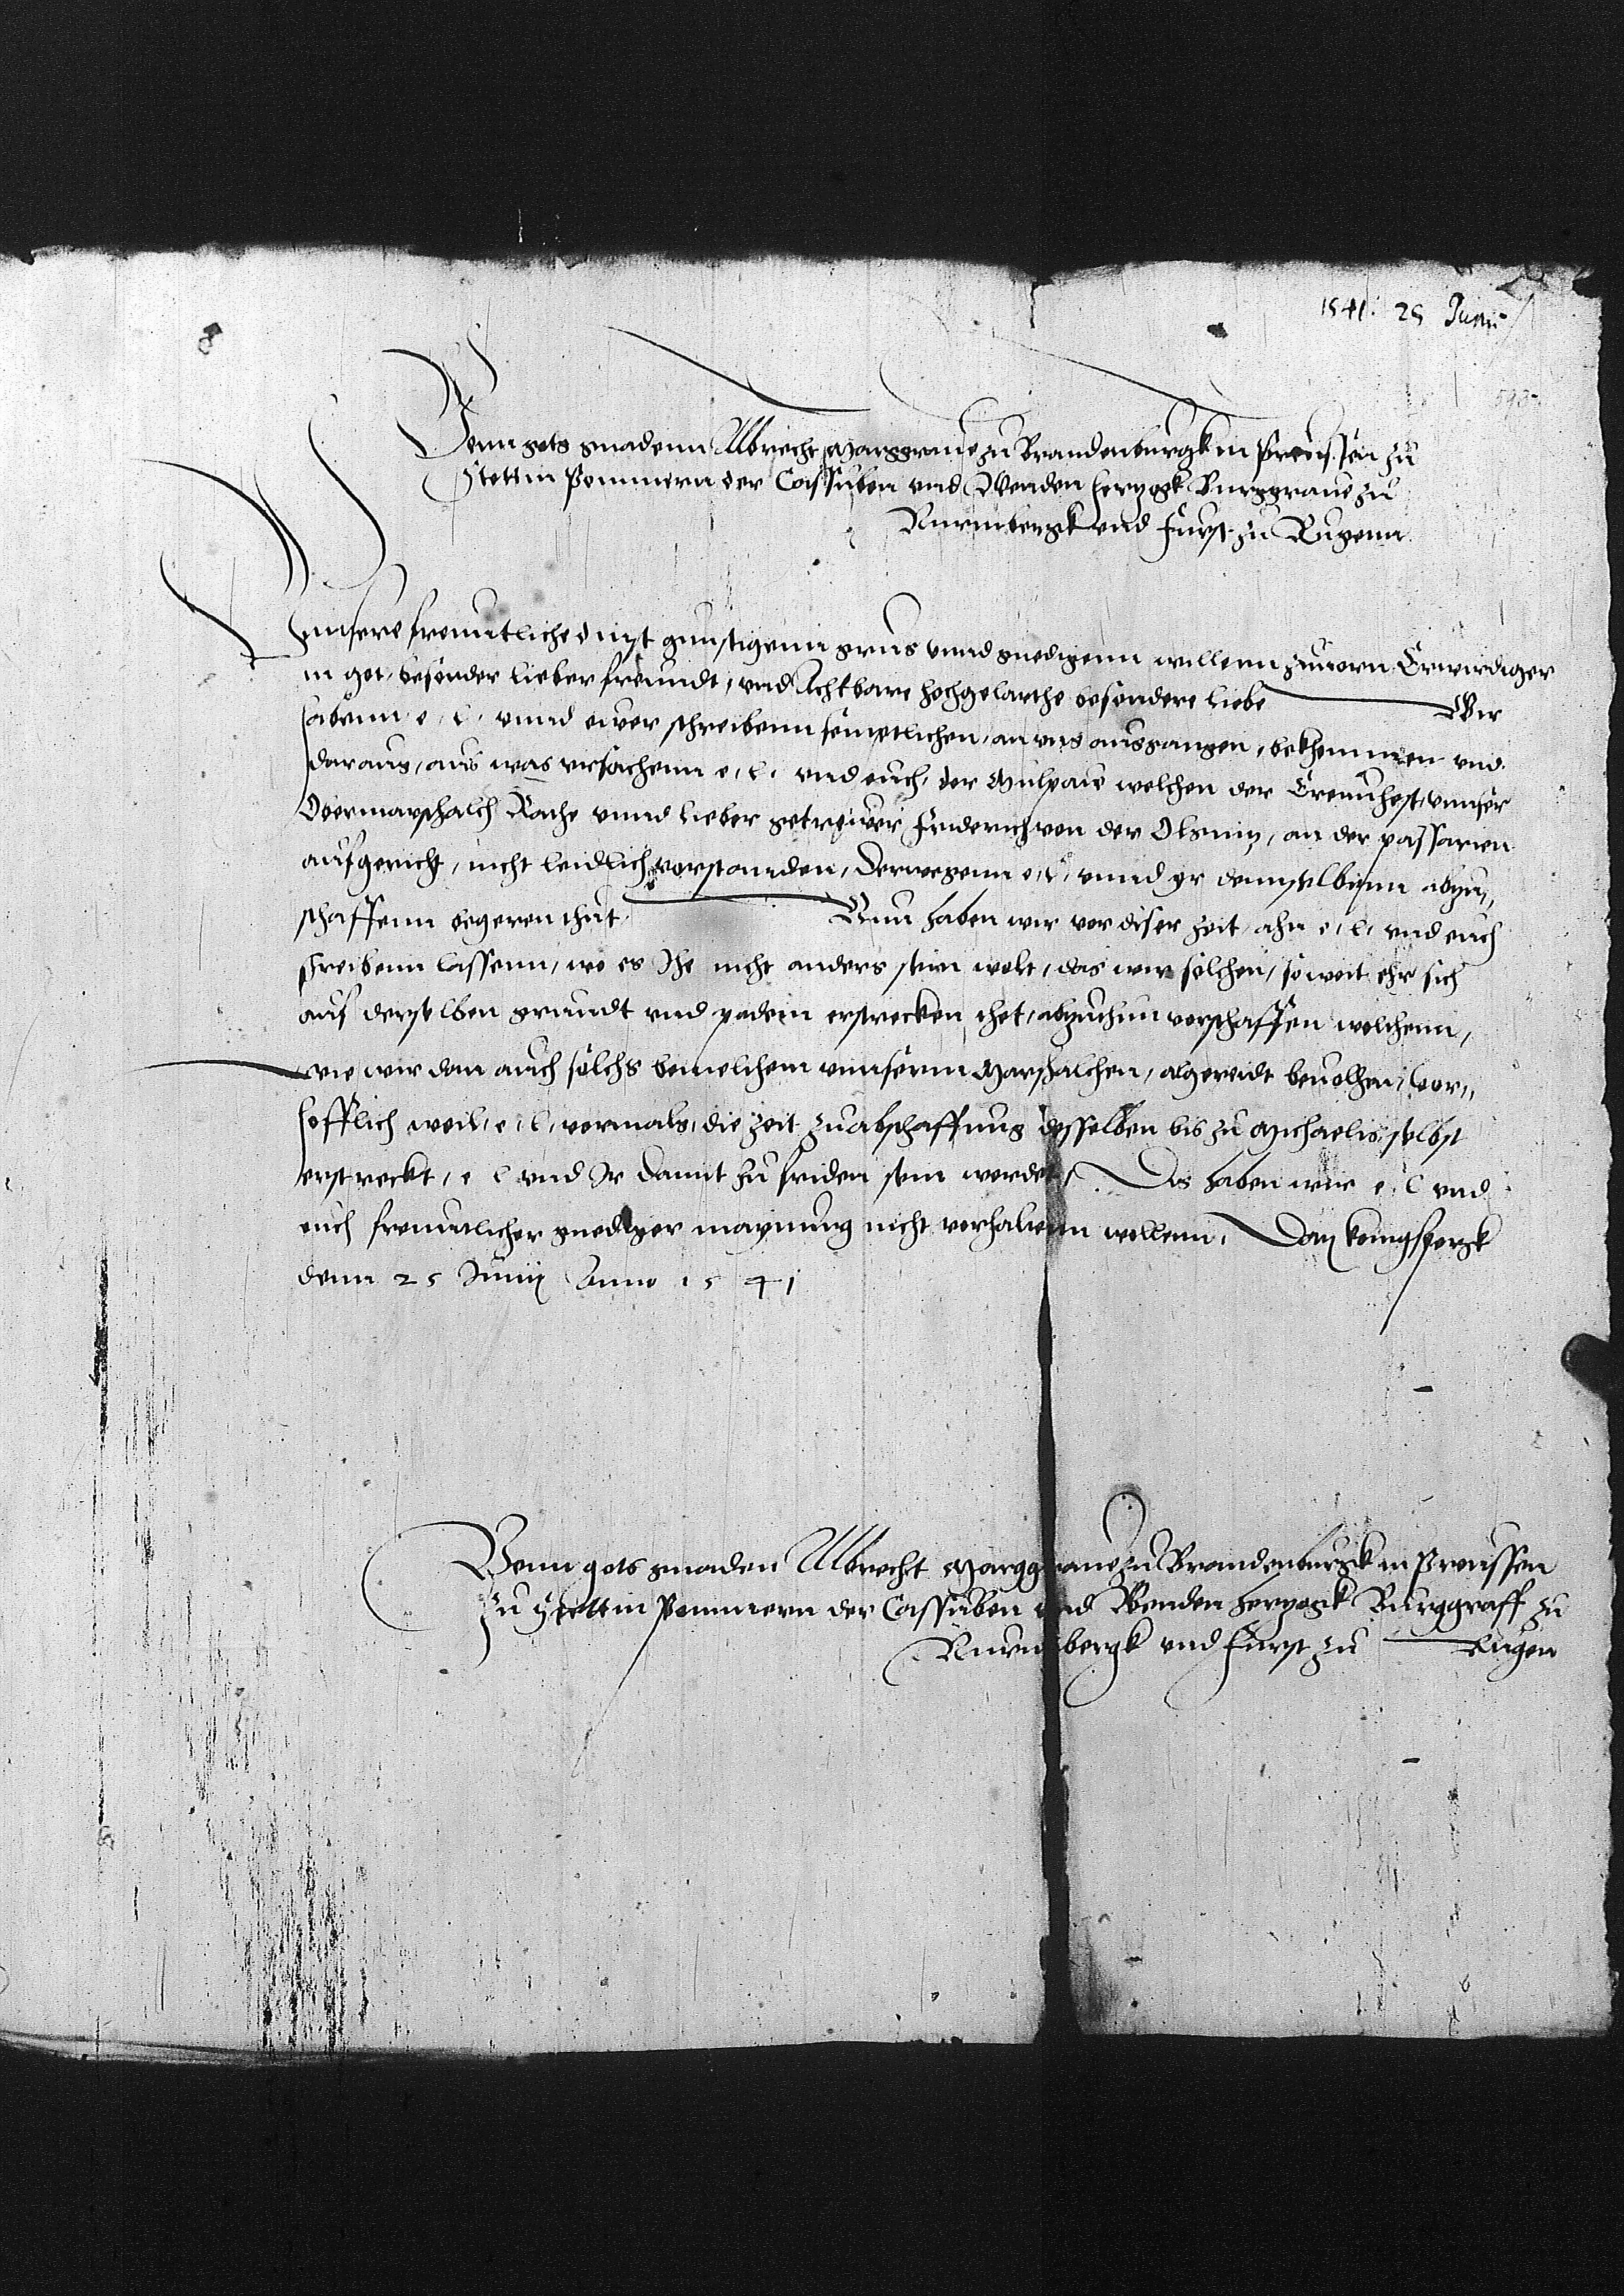 1541: 25 Junii
Vonn gots gnadenn Albrecht Marggraue zu Brandenburgk in Preussen zu
Stettin Pommern der Cassuben vnd Wenden hertzogk Burggraue zu
Nurmbergk vnd Furst zu Rugenn
Vnnsere freuntliche dinst gunstigenn grus vnnd gnedigenn willenn zuuorn Erwirdiger
in got, besonder lieber freundt, vnd Achtbare hochgelarthe besondere liebe Wir
habenn e, l, vnnd ewer schreibenn semptlichen, an vns ausgangen, bekhommen vnd
daraus, aus was vrsachenn e, l, vnd euch, der Mulpaw welchen der Ernuhest, vnnser
Obermarschalch Rathe vnnd lieber getrewer Friderich von der Olsnitz, an der passarien
aufgericht, nicht leidlich, vorstanden, Derwegenn e, l, vnnd yr dennselbigenn abzu,,
schaffenn begeren thut Nun haben wir vor diser zeit, ahn e, l, vnd euch
schreibenn lassenn, wo es Jhe nicht anders sein wolt, das wir solchen, so weit ehr sich
auf derselben grundt vnd padem erstrecken thet, abzuthun vorschaffen wolthenn,
wie wir dan auch solchs bemelthem vnnserm Marschalchen, algereidt beuolhen, vor,,
hofflich weil, e, l, vormals, die zeit zu abschaffung desselben bis zu Michaelis, selbst
erstreckt, e l vnd Jr damit zu friden sein werdet, Das haben wir e, l vnd
euch freuntlicher gnediger maynung nicht verhalten wollenn, Dat konigspergk
denn 25 Junij Anno 1541
Vonn gots gnaden Albrecht Marggraue zu Brandenburgk in Preussen
zu Stettin Pommern der Cassuben vnd Wenden hertzogk Burggraff zu
Nurmbergk vnd Furst zu Rugen